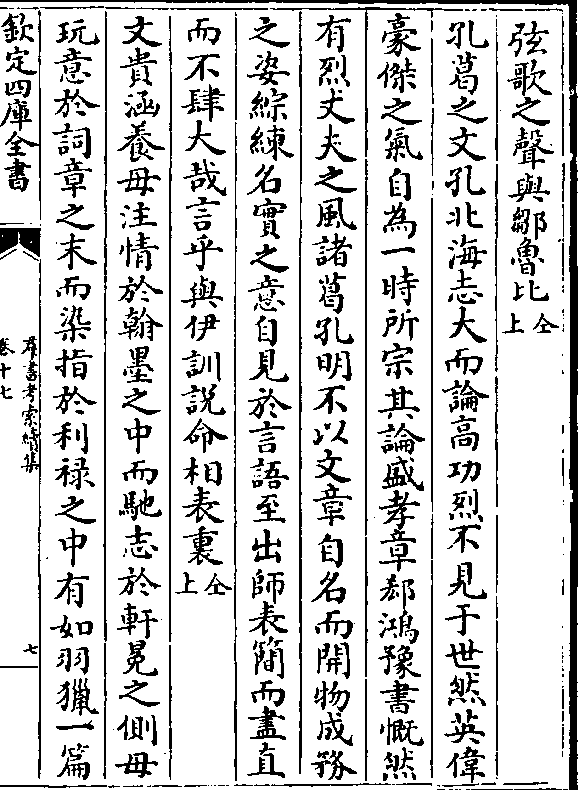 弦歌之聲與鄒魯比仝上
孔葛之文孔北海志大而論高功烈不見于世然英偉
豪傑之氣自為一時所宗其論盛孝章郄鴻豫書慨然
有烈丈夫之風諸葛孔明不以文章自名而開物成務
之姿綜練名實之意自見於言語至出師表簡而盡直
而不肆大哉言乎與伊訓說命相表裏仝上
文貴涵養毋注情於翰墨之中而馳志於軒冕之側毋
玩意於詞章之末而染指於利祿之中有如羽獵一篇
欽定四庫全書
羣書考索續集
卷十七
七